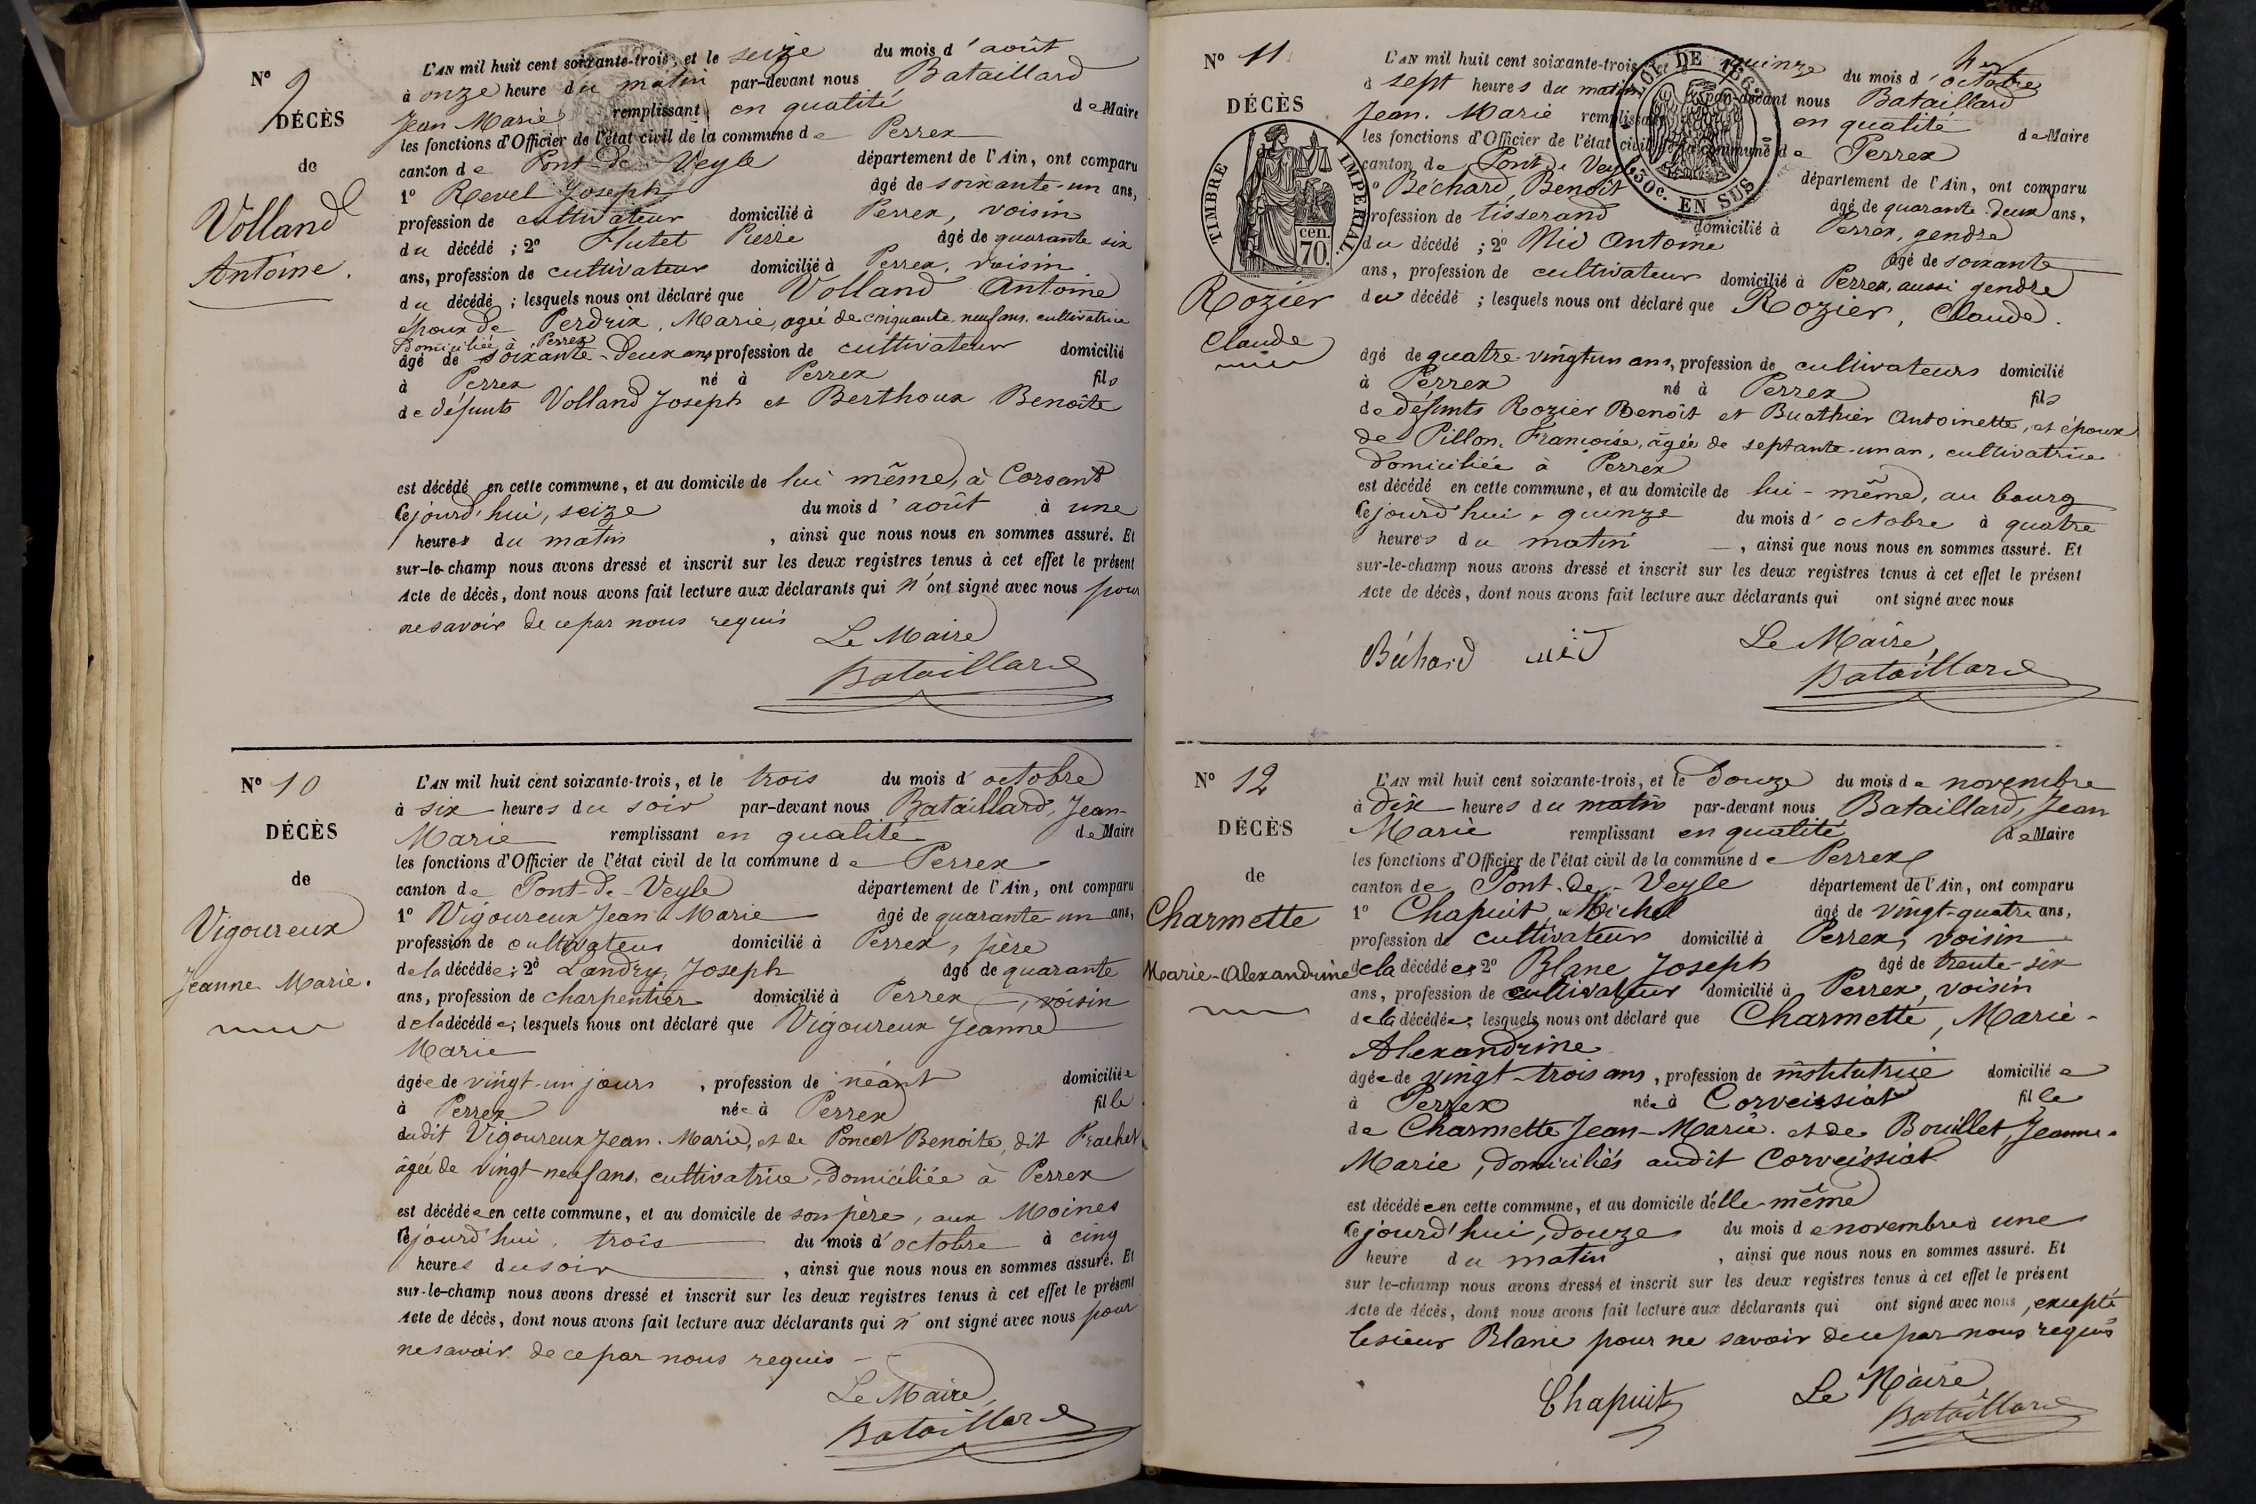 N° 9
DÉCÈS
de
Volland
Antoine.
L'AN mil huit cent soixante-trois, et le seize du mois d'août
à onze heure du matin par-devant nous Bataillard
Jean Marie remplissant en qualité de Maire
les fonctions d'Officier de l'état civil de la commune de Perrex
canton de Pont-de-Veyle département de l'Ain, ont comparu
1° Revel Joseph âgé de soixante-un ans,
profession de cultivateur domicilié à Perrex, voisin
du décédé ; 2° Flutet Pierre âgé de quarante six
ans, profession de cultivateur domicilié à Perrex, voisin
du décédé ; lesquels nous ont déclaré que Volland Antoine
époux de Perdrix, Marie, agée de cinquante-neuf ans, cultivatrice
Domiciliée à Perrex
âgé de soixante-deux ans, profession de cultivateur domicilié
à Perrex né à Perrex fils
de défunts Volland Joseph et Berthoux Benoîte
est décédé en cette commune, et au domicile de lui même, à Corsant
Cejourd'hui, seize du mois d'août à une
heures du matin, ainsi que nous nous en sommes assuré. Et
sur-le-champ nous avons dressé et inscrit sur les deux registres tenus à cet effet le présent
Acte de décès, dont nous avons fait lecture aux déclarants qui n'ont signé avec nous pour
ne savoir de ce par nous requis
Le Maire
Bataillard
N° 10
DÉCÈS
de
Vigoureux
Jeanne Marie.
L'AN mil huit cent soixante-trois, et le trois du mois d'octobre
à six heures du soir par-devant nous Bataillard, Jean-
Marie remplissant en qualité de Maire
les fonctions d'Officier de l'état civil de la commune de Perrex
canton de Pont-de-Veyle département de l'Ain, ont comparu
1° Vigoureux Jean Marie âgé de quarante-un ans,
profession de cultivateur domicilié à Perrex, père
de la décédée ; 2° Landry, Joseph âgé de quarante
ans, profession de charpentier domicilié à Perrex, voisin
de la décédée ; lesquels nous ont déclaré que Vigoureux Jeanne
Marie
âgée de vingt-un jours, profession de néant domiciliée
à Perrex née à Perrex fille
dudit Vigoureux Jean-Marie, et de Poncet Benoite, dit Frachet
âgée de vingt-neuf ans, cultivatrice, Domiciliée à Perrex
est décédée en cette commune, et au domicile de son père, aux Moines
Cejourd'hui, trois du mois d'octobre à cinq
heures du soir, ainsi que nous nous en sommes assuré. Et
sur-le-champ nous avons dressé et inscrit sur les deux registres tenus à cet effet le présent
Acte de décès, dont nous avons fait lecture aux déclarants qui n'ont signé avec nous pour
ne savoir de ce par nous requis
Le Maire,
Bataillard
N° 11
DÉCÈS
TIMBRE IMPERIAL.
cen.
70.
Rozier
Claude
LOI DE 1862
30c. EN SUS
L'AN mil huit cent soixante-trois, et le quinze du mois d'octobre
à sept heures du matin par-devant nous Bataillard
Jean-Marie remplissant en qualité de Maire
les fonctions d'Officier de l'état civil de la commune de Perrex
canton de Pont-de-Veyle département de l'Ain, ont comparu
1° Béchard, Benoît âgé de quarante-deux ans,
profession de tisserand domicilié à Perrex, gendre
du décédé ; 2° Nid Antoine âgé de soixante
ans, profession de cultivateur domicilié à Perrex, aussi gendre
du décédé ; lesquels nous ont déclaré que Rozier, Claude.
âgé de quatre-vingt un ans, profession de cultivateurs domicilié
à Perrex né à Perrex fils
de défunts Rozier Benoît et Buathier Antoinette, et époux
de Pillon, Françoise, âgée de septante-un an, cultivatrice
Domiciliée à Perrex
est décédé en cette commune, et au domicile de lui-même, au bourg
Cejourd'hui, quinze du mois d'octobre à quatre
heures du matin, ainsi que nous nous en sommes assuré. Et
sur-le-champ nous avons dressé et inscrit sur les deux registres tenus à cet effet le présent
Acte de décès, dont nous avons fait lecture aux déclarants qui ont signé avec nous
Béchard Nid Le Maire,
Bataillard
N° 12
DÉCÈS
de
Charmette
Marie-Alexandrine
L'AN mil huit cent soixante-trois, et le Douze du mois de novembre
à dix heures du matin par-devant nous Bataillard, Jean
Marie remplissant en qualité de Maire
les fonctions d'Officier de l'état civil de la commune de Perrex
canton de Pont-de-Veyle département de l'Ain, ont comparu
1° Chapuit, Michel âgé de vingt-quatre ans,
profession de cultivateur domicilié à Perrex, voisin
de la décédée 2° Blanc Joseph âgé de trente-six
ans, profession de cultivateur domicilié à Perrex, voisin
de la décédée ; lesquels nous ont déclaré que Charmette, Marie-
Alexandrine
âgée de vingt-trois ans, profession de institutrice domiciliée
à Perrex née à Corveissiat fille
de Charmette Jean-Marie et de Bouillet, Jeanne-
Marie, domiciliés audit Corveissiat
est décédée en cette commune, et au domicile d'elle-même
Cejourd'hui, douze du mois de novembre à une
heure du matin, ainsi que nous nous en sommes assuré. Et
sur le-champ nous avons dressé et inscrit sur les deux registres tenus à cet effet le présent
Acte de décès, dont nous avons fait lecture aux déclarants qui ont signé avec nous, excepté
le sieur Blanc pour ne savoir de ce par nous requis
Chapuit Le Maire
Bataillard